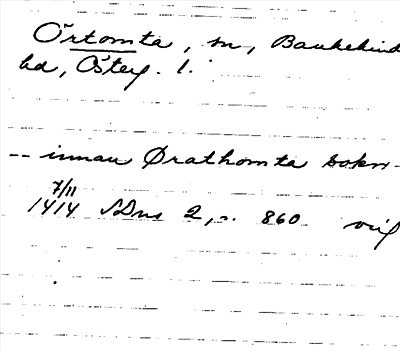 Örtomta, sn, Bankekind
hd, Österg. l.
-- innan Ørathomta sokn --
7/11
1414 SDns 2, s. 860 orig